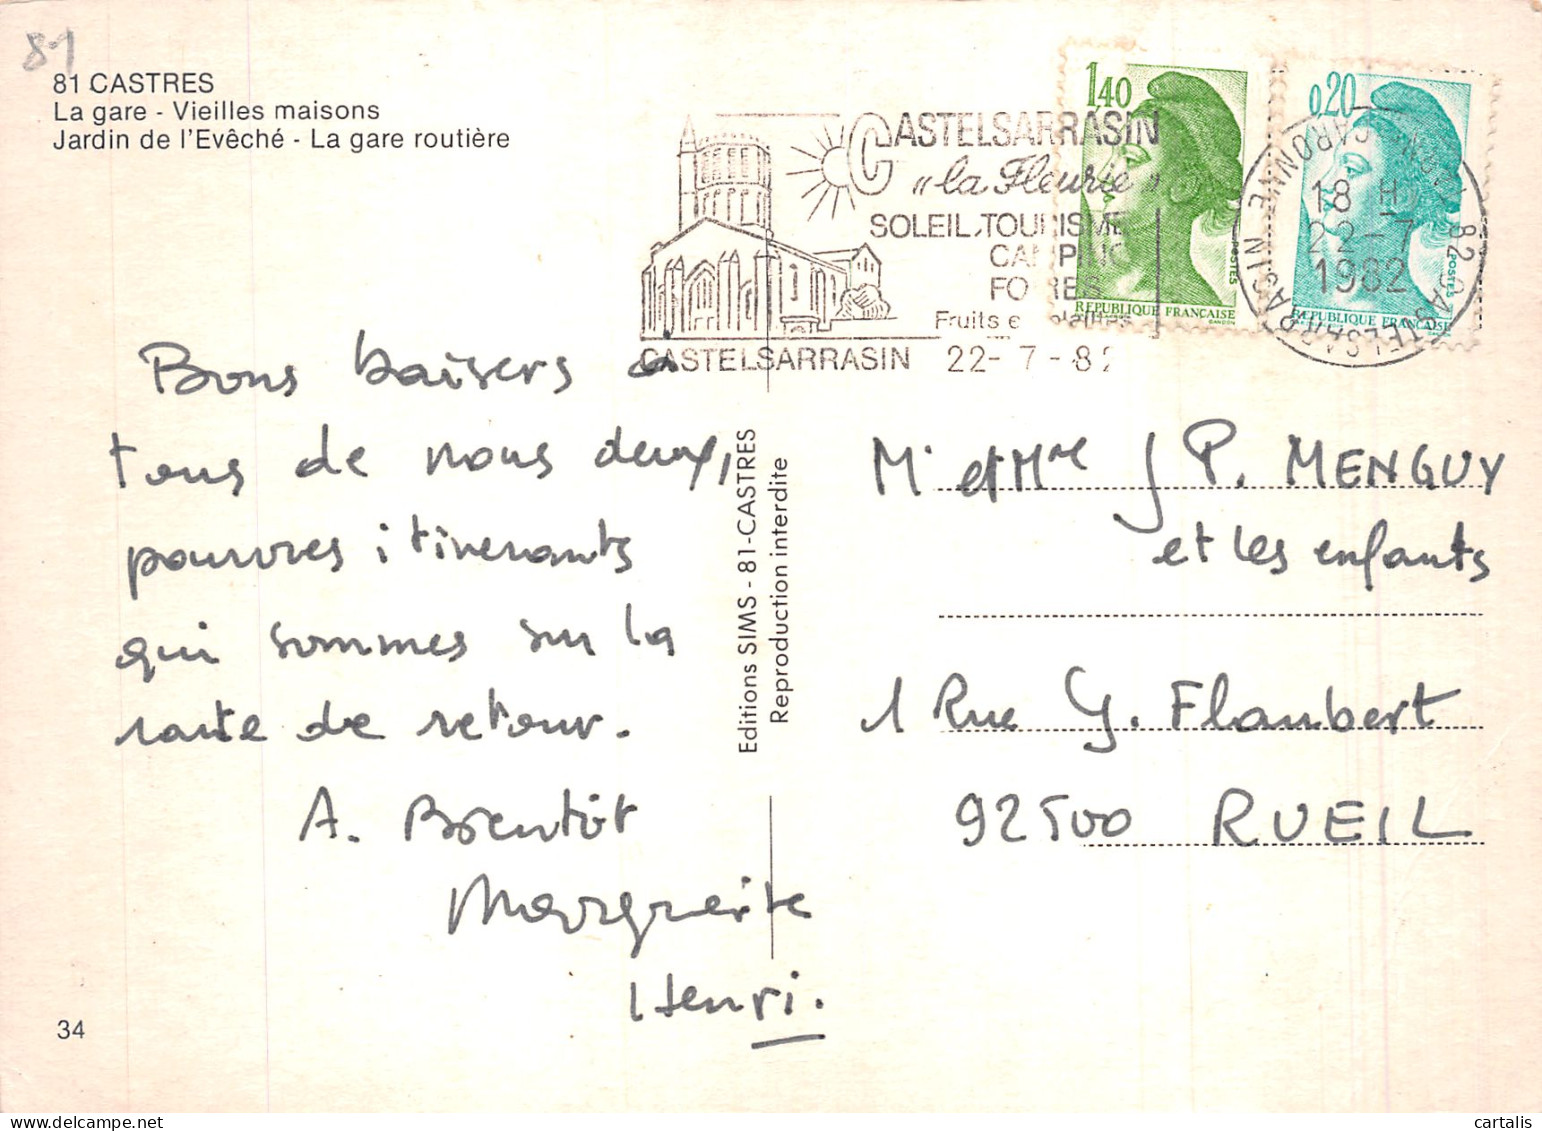 81
81 CASTRES
La gare - Vieilles maisons
Jardin de l'Evêché - La gare routière
CASTELSARRASIN
"la Fleurie"
SOLEIL, TOURISME
CAMPING
FOIRES
Fruits
CASTELSARRASIN 22-7-82
1,40
POSTES
REPUBLIQUE FRANÇAISE
GANDON
0,20
POSTES
REPUBLIQUE FRANÇAISE
82 CASTELSARRASIN
TARN ET GARONNE
18 H
22-7
1982
Bons baisers à
tous de nous deux,
pauvres itinerants
qui sommes sur la
route de retour.
A. Bientôt
Marguerite
Henri.
34
Editions SIMS - 81-CASTRES
Reproduction interdite
Mr et Mme J P. MENGUY
et les enfants
1 Rue G. Flaubert
92500 RUEIL
cartalis